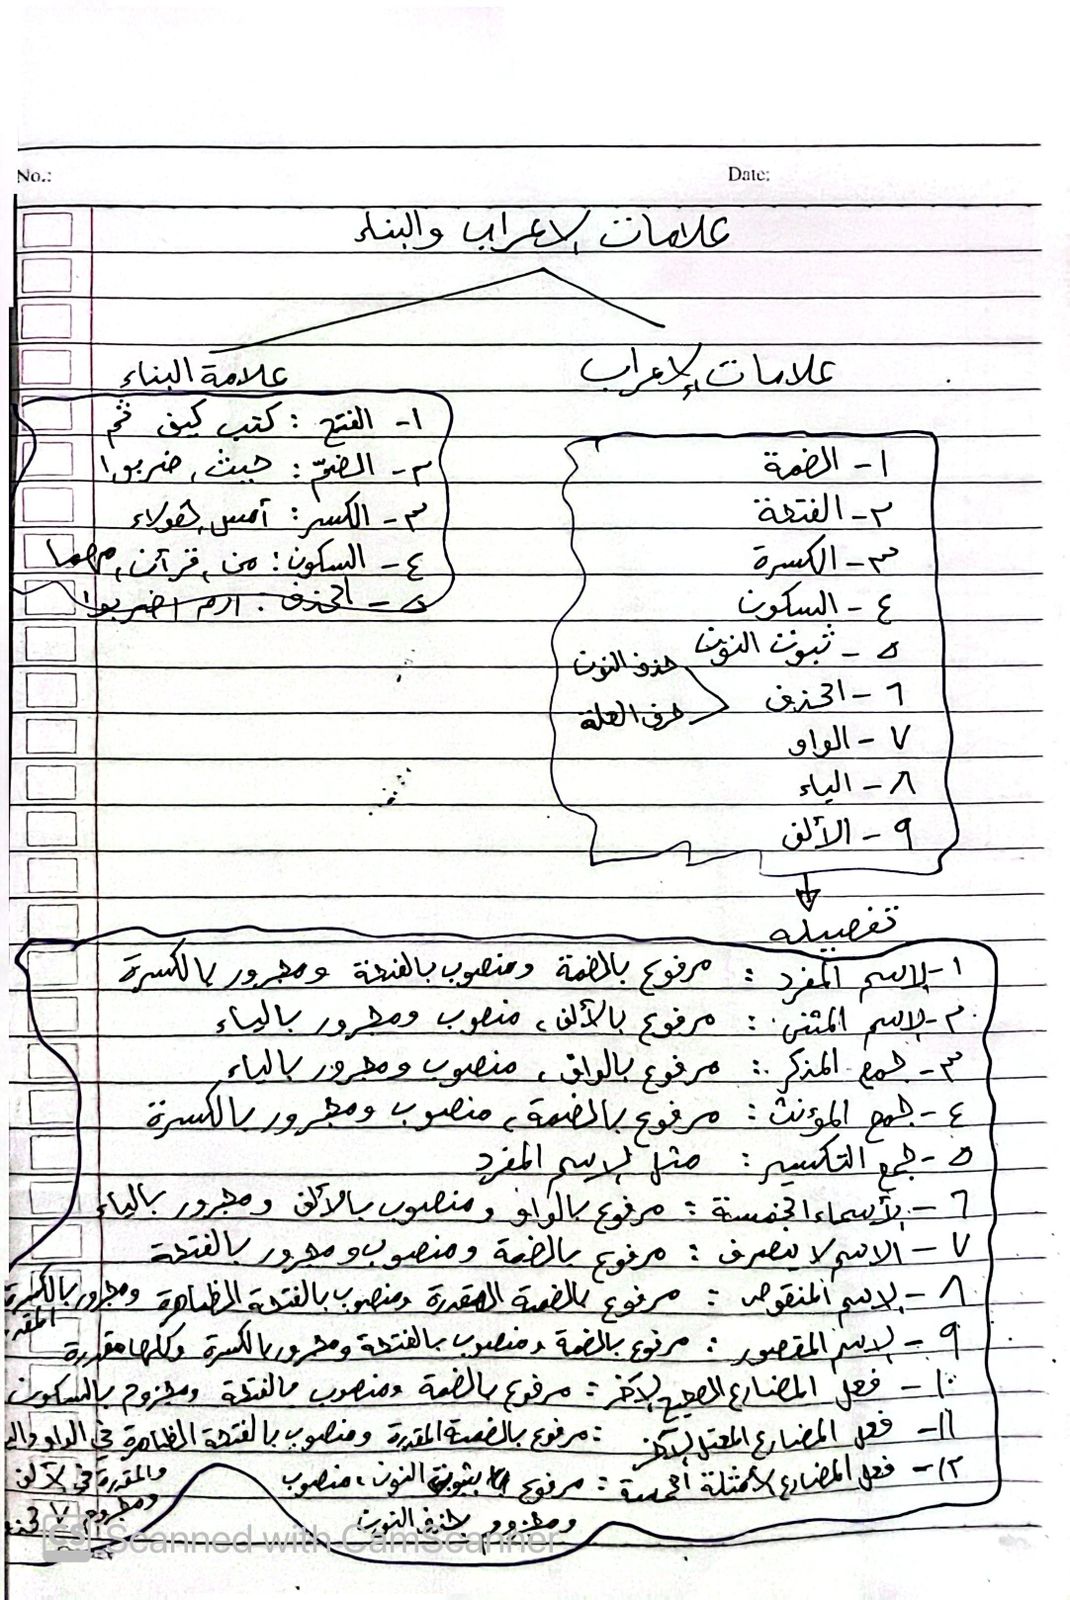 No.:
Date:
علامات الإعراب والبناء
علامات الإعراب
١- الضمة
٢- الفتحة
٣- الكسرة
٤- السكون
٥- ثبوت النون
٦- الحذف
حذف النون
حرف العلة
٧- الواو
٨- الياء
٩- الألف
علامة البناء
١- الفتح: كتب كيف ثم
٢- الضمّ: حيث، ضربوا
٣- الكسر: أمس، هؤلاء
٤- السكون: من، قرأن، مهما
٥- الحذف: ارم اضربوا
تفصيله
١- الاسم المفرد: مرفوع بالضمة ومنصوب بالفتحة ومجرور بالكسرة
٢- الاسم المثنى: مرفوع بالألف، منصوب ومجرور بالياء
٣- جمع المذكر: مرفوع بالواو، منصوب ومجرور بالياء
٤- جمع المؤنث: مرفوع بالضمة، منصوب ومجرور بالكسرة
٥- جمع التكسير: مثل الاسم المفرد
٦- الأسماء الخمسة: مرفوع بالواو ومنصوب بالألف ومجرور بالياء
٧- الاسم لا ينصرف: مرفوع بالضمة ومنصوب ومجرور بالفتحة
٨- الاسم المنقوص: مرفوع بالضمة المقدرة ومنصوب بالفتحة الظاهرة ومجرور بالكسرة
٩- الاسم المقصور: مرفوع بالضمة ومنصوب بالفتحة ومجرور بالكسرة وكلها مقدرة
١٠- فعل المضارع الصحيح الآخر: مرفوع بالضمة ومنصوب بالفتحة ومجزوم بالسكون
١١- فعل المضارع المعتل الآخر: مرفوع بالضمة المقدرة ومنصوب بالفتحة الظاهرة في الواو
والمقدرة في الألف
١٢- فعل المضارع الأمثلة الخمسة: مرفوع بثبوت النون، منصوب
ومجزوم بحذف النون
CS Scanned with CamScanner